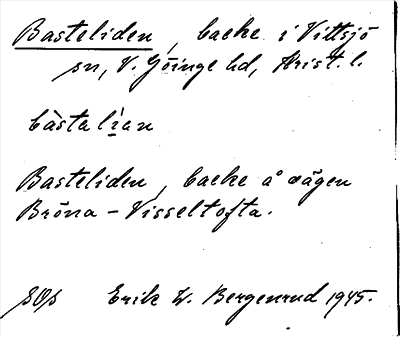 Basteliden, backe i Vittsjö
sn, V. Göinge hd, Krist. l.
bàstalían
Basteliden, backe å vägen
Bröna - Visseltofta.
Erik W. Bergenrud 1945.